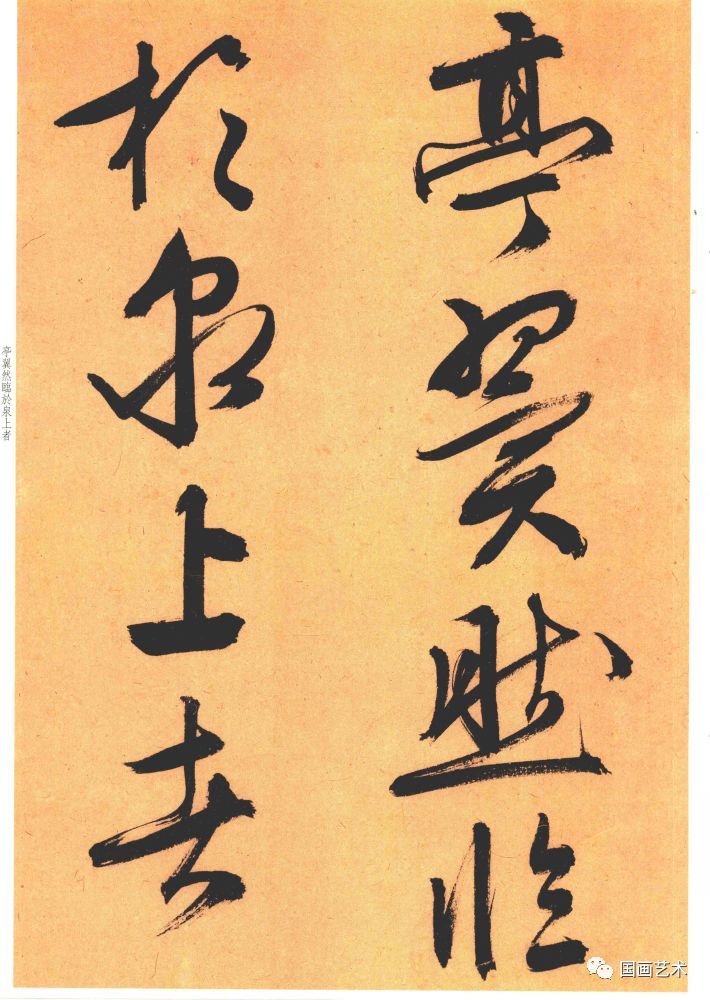 亭翼然臨
於泉上者
亭翼然臨於泉上者
国画艺术